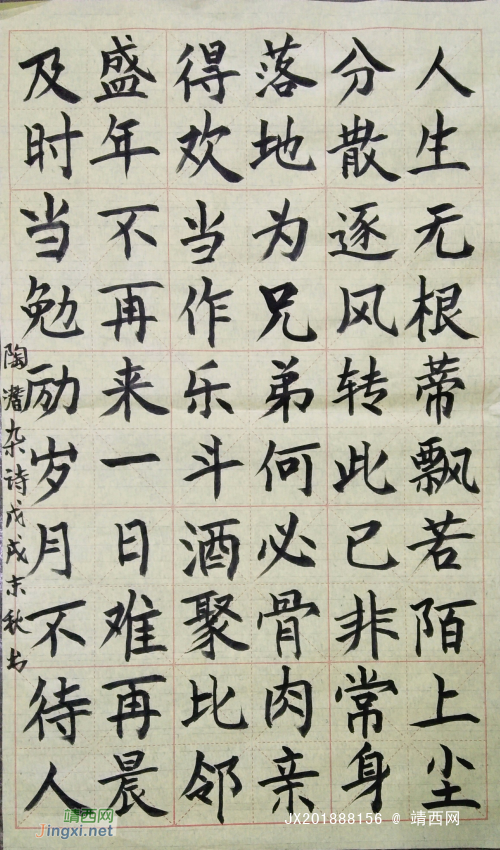 人生无根蒂飘若陌上尘
分散逐风转此已非常身
落地为兄弟何必骨肉亲
得欢当作乐斗酒聚比邻
盛年不再来一日难再晨
及时当勉励岁月不待人
陶潜杂诗戊戌末秋书
靖西网
Jingxi.net
JX201888156 @ 靖西网